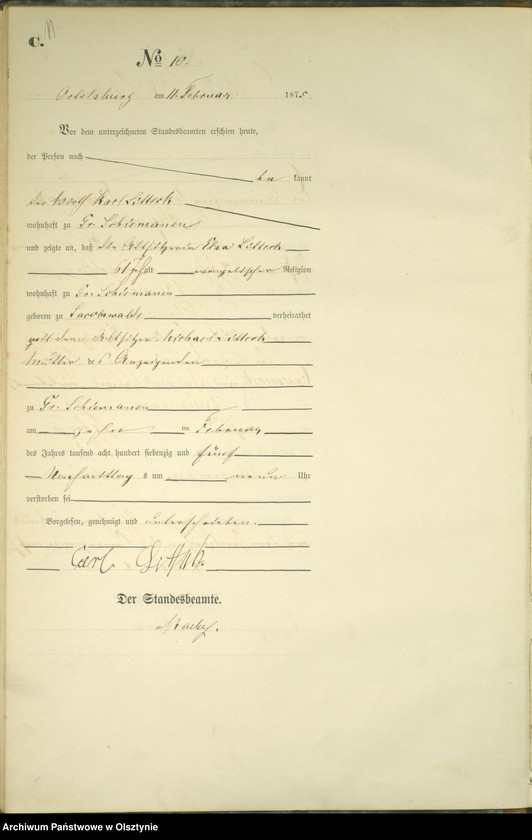 11
C.
No 10.
Ortelsburg am 11. Februar 1875
Vor dem unterzeichneten Standesbeamten erschien heute,
der Person nach be kannt
der Wirth Karl Littek
wohnhaft zu Gr. Schiemanen
und zeigte an, daß die Altsitzerin Littek
61 J. alt evangelischer Religion
wohnhaft zu Gr. Schiemanen
geboren zu verheirathet
mit dem Altsitzer Michael Littek
Mutter des Anzeigenden
zu Gr. Schiemanen
am zehn ten Februar
des Jahres tausend acht hundert siebenzig und fünf
Nachmittag s um neun Uhr
verstorben sei
Vorgelesen, genehmigt und unterschrieben.
Carl Littek
Der Standesbeamte.
Archiwum Państwowe w Olsztynie